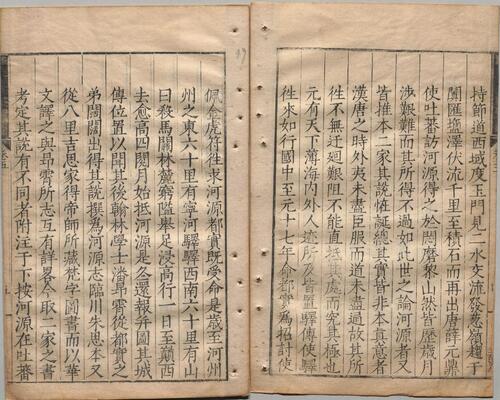 持節道西域度玉門見二水交流發葱嶺趨于
闐匯鹽澤伏流千里至積石而再出唐薛元鼎
使吐蕃訪河源得之於悶磨黎山然皆歷歲月
涉艱難而其所得不過如此世之論河源者又
皆推本二家其說恠誕總其實皆非本真意者
漢唐之時外夷未盡臣服而道未盡通故其所
徃不無迂迴艱阻不能直抵其處而究其極也
元有天下薄海內外人迹所及皆置驛傳使驛
徃來如行國中至元十七年命都實為招討使
佩金虎符徃求河源都實既受命是歲至河州
州之東六十里有寧河驛驛西南六十里有山
曰殺馬關林麓窮隘舉足浸高行一日至巔西
去愈高四閱月始抵河源是冬還報并圖其城
傳位置以聞其後翰林學士潘昂霄從都實之
弟闊闊出得其說撰為河源志臨川朱思本又
從八里吉思家得帝師所藏梵字圖書而以華
文譯之與昂霄所志互有詳畧今取二家之書
考定其說有不同者附注于下按河源在吐蕃